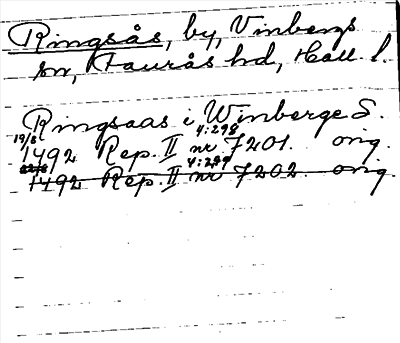 Ringsås, by, Vinbergs
sn, Faurås hd, Hall. l.
Ringsaas i Winberge S.
4:298
19/8 1492 Rep. II nr 7201. orig.
4:299
1492 Rep. II nr 7202. orig.